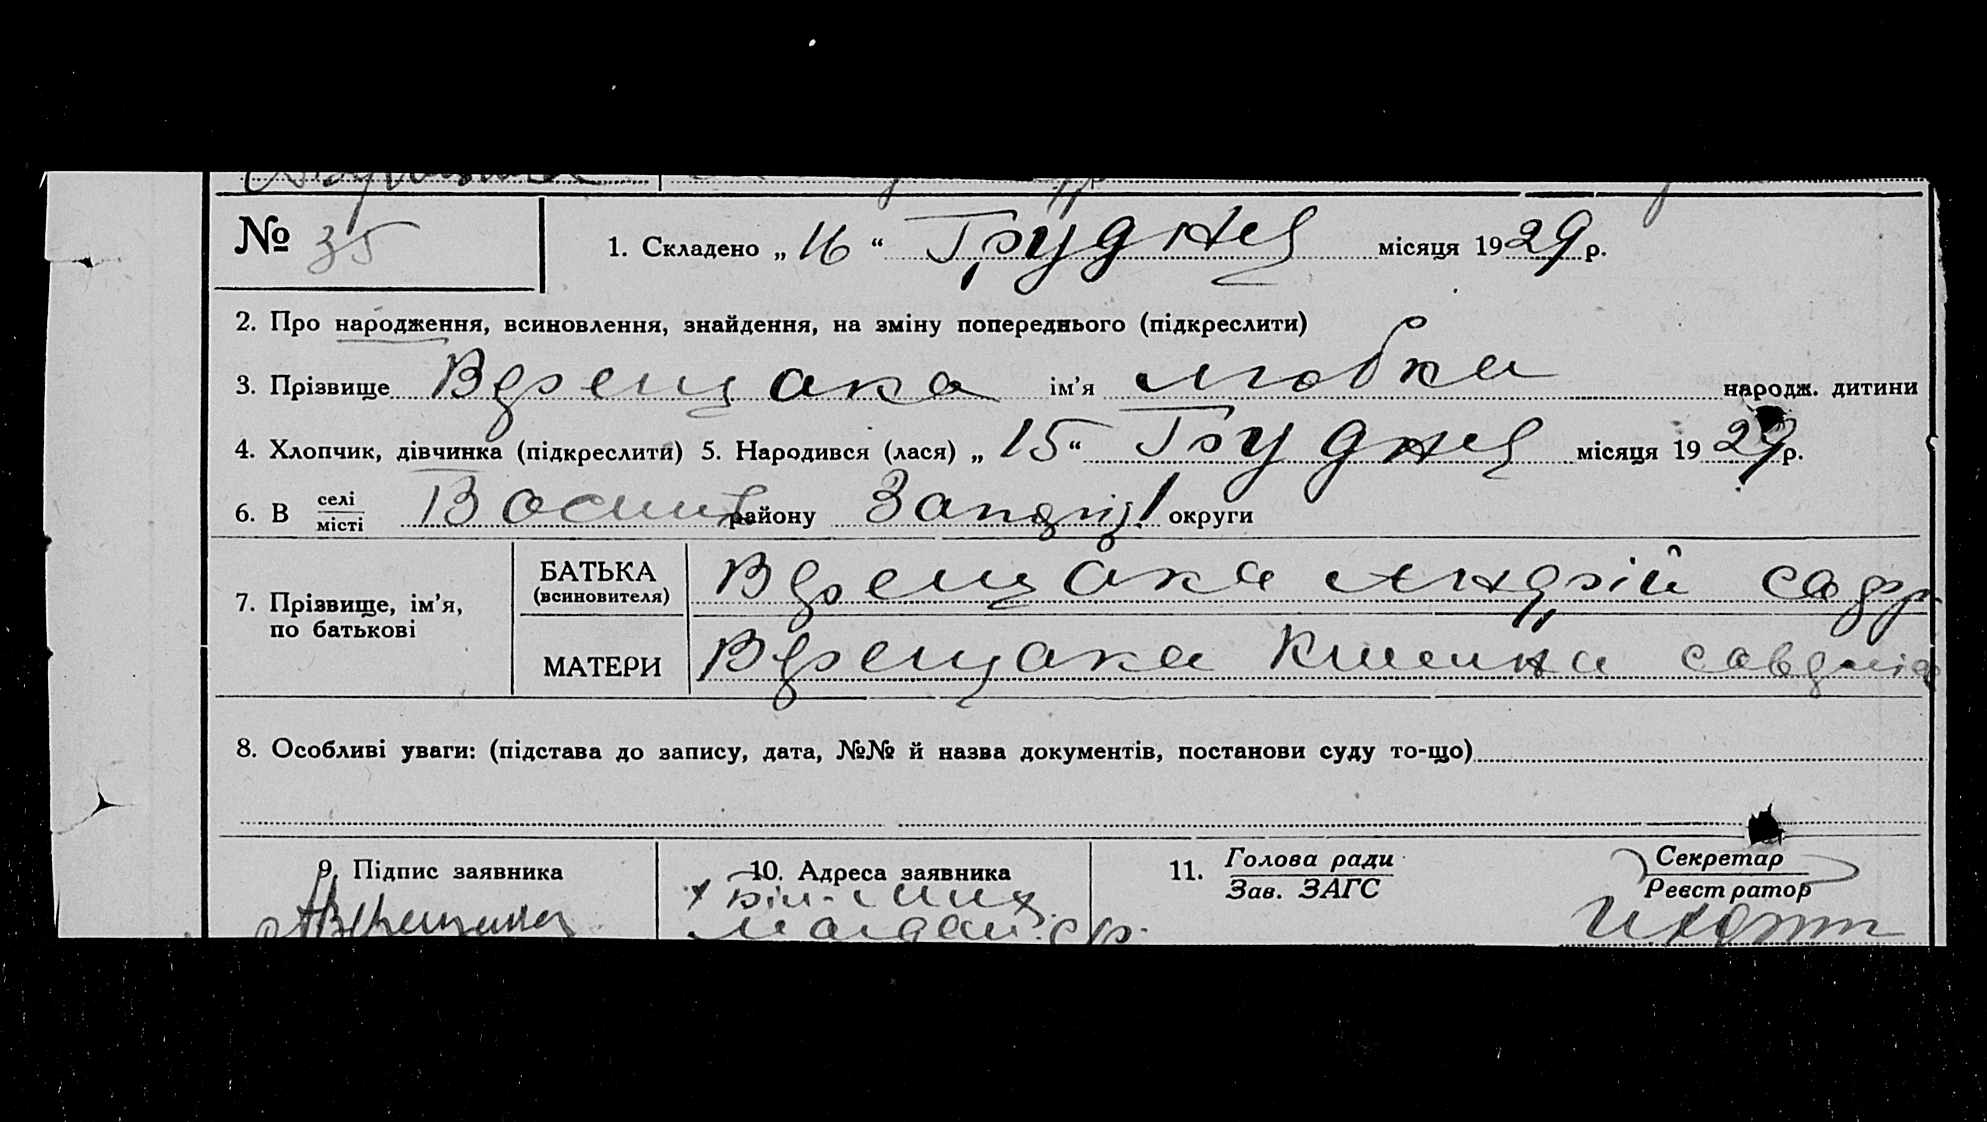 № 35
1. Складено „ 16 “ Грудня місяця 1929 р.
2. Про народження, всиновлення, знайдення, на зміну попереднього (підкреслити)
3. Прізвище Верещака ім’я Любка народж. дитини
4. Хлопчик, дівчинка (підкреслити) 5. Народився (лася) „ 15 “ Грудня місяця 1929 р.
6. В селі місті району Запоріз. округи
7. Прізвище, ім’я, по батькові
БАТЬКА (всиновителя) Верещака Андрій
МАТЕРИ Верещака
8. Особливі уваги: (підстава до запису, дата, №№ й назва документів, постанови суду то-що)
9. Підпис заявника
10. Адреса заявника
11. Голова ради Зав. ЗАГС
Секретар Реєстратор